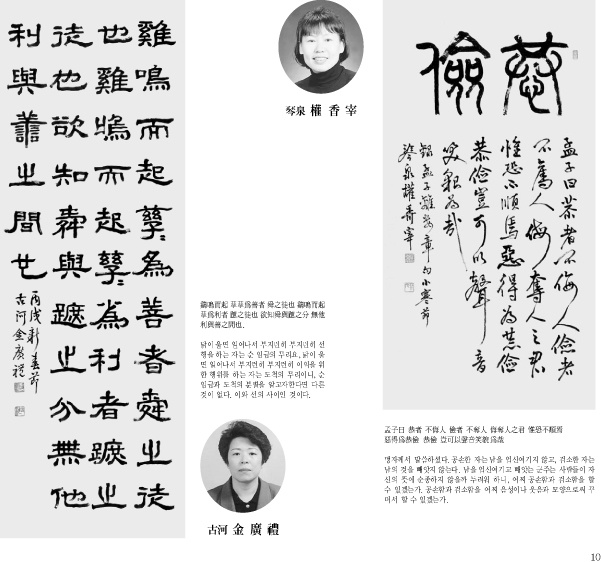 雞鳴而起孳〻為善者舜之徒
也雞鳴而起孳〻為利者蹠之
徒也欲知舜與蹠之分無他
利與善之間也
丙戌新春節
古河金廣禮
琴泉 權香宰
鷄鳴而起 孶孶爲善者 舜之徒也 鷄鳴而起
孶孶爲利者 蹠之徒也 欲知舜與蹠之分 無他
利與善之間也.
닭이 울면 일어나서 부지런히 부지런히 선
행을 하는 자는 순 임금의 무리요, 닭이 울
면 일어나서 부지런히 부지런히 이익을 위
한 행위를 하는 자는 도척의 무리이니, 순
임금과 도척의 분별을 알고자한다면 다른
것이 없다. 이와 선의 사이인 것이다.
古河 金廣禮
恭儉
孟子曰恭者不侮人儉者
不奪人侮奪人之君
惟恐不順焉惡得為恭儉
恭儉豈可以聲音
笑貌為哉
錄孟子離婁章句小寒節
琴泉權香宰
孟子曰 恭者 不侮人 儉者 不奪人 侮奪人之君 惟恐不順焉
惡得爲恭儉 恭儉 豈可以聲音笑貌 爲哉
맹자께서 말씀하셨다. 공손한 자는 남을 업신여기지 않고, 검소한 자는
남의 것을 빼앗지 않는다. 남을 업신여기고 빼앗는 군주는 사람들이 자
신의 뜻에 순종하지 않을까 두려워 하니, 어찌 공손함과 검소함을 할
수 있겠는가. 공손함과 검소함을 어찌 음성이나 웃음과 모양으로써 꾸
며서 할 수 있겠는가.
10